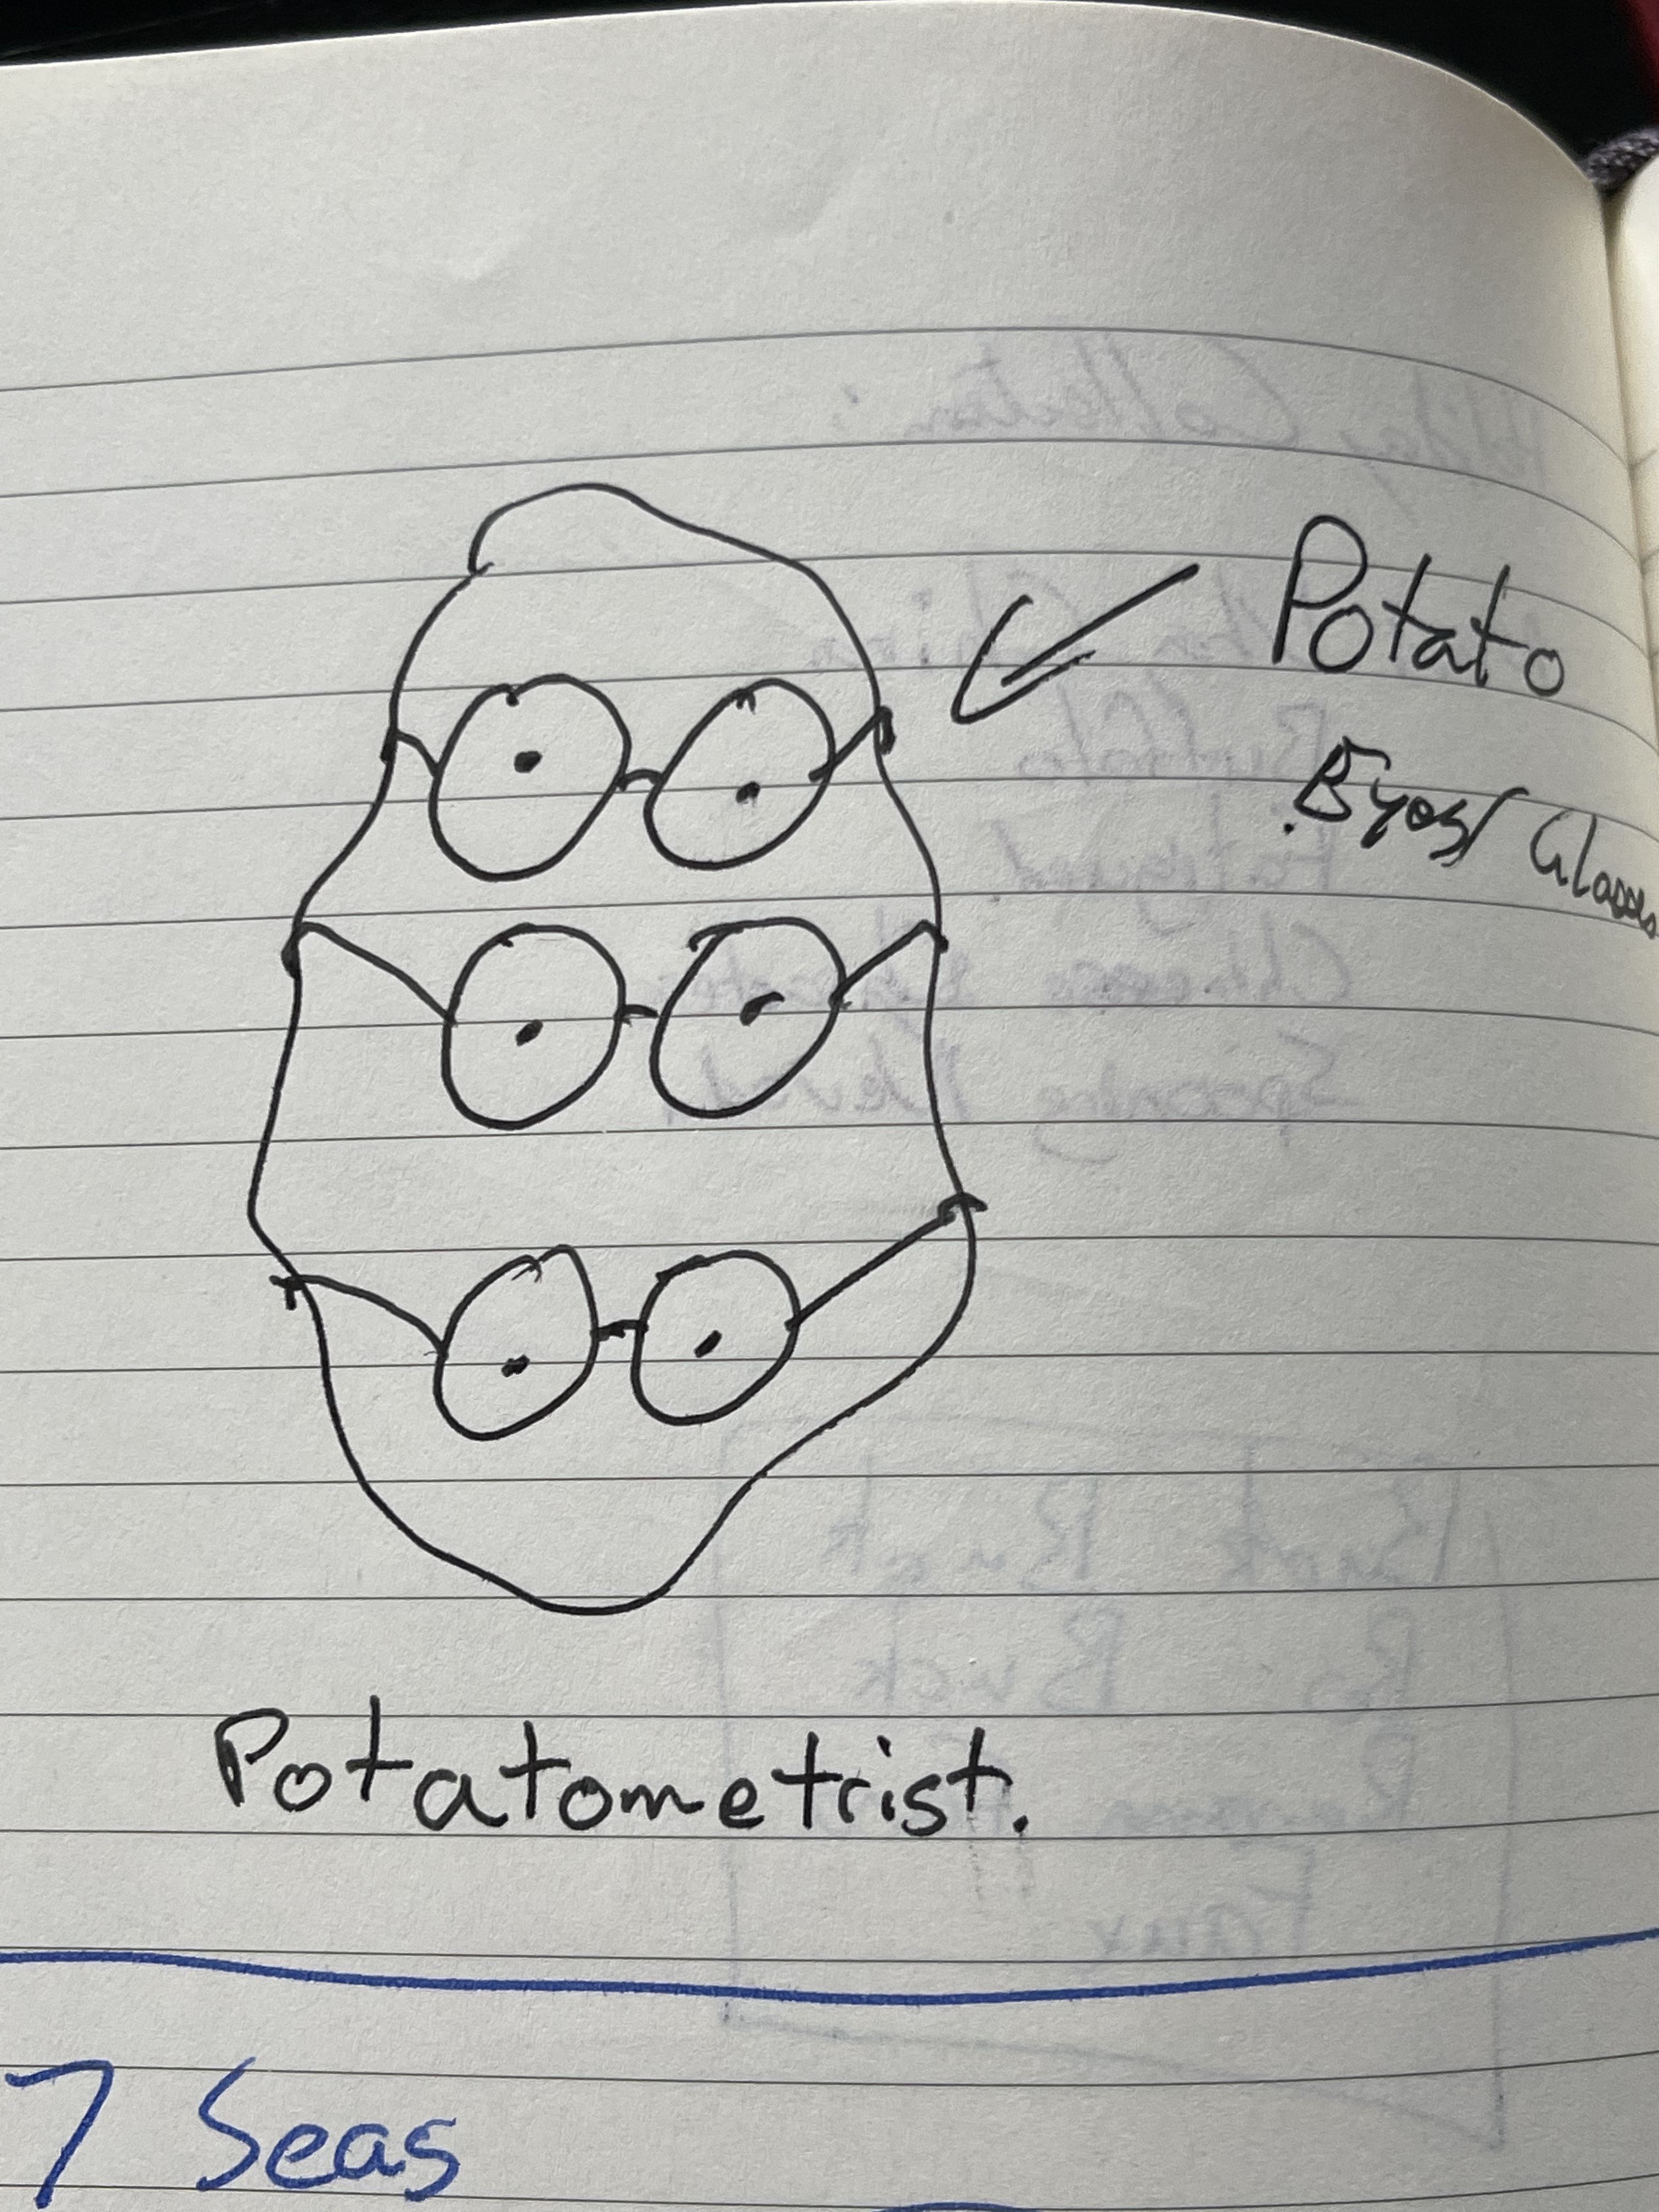 Potato
Eyes/ Glasses
Potatometrist.
7 Seas